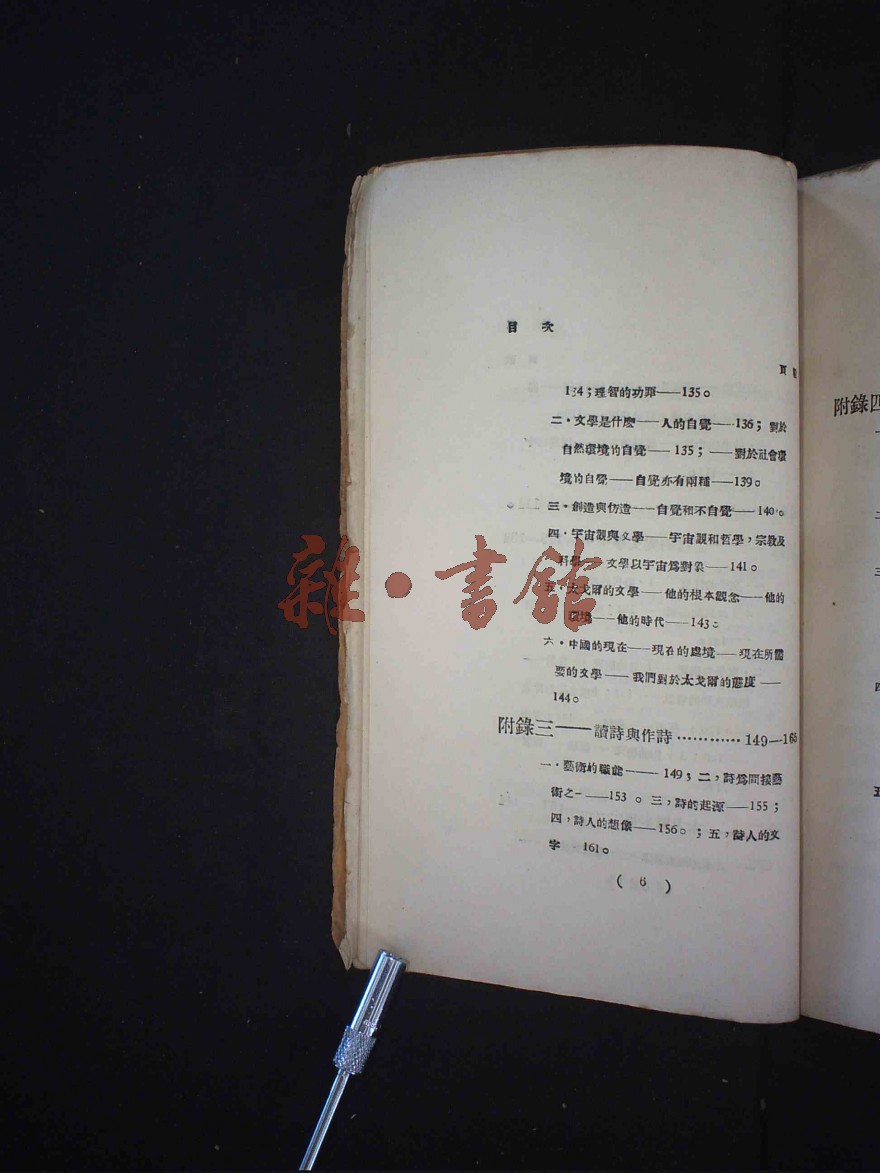 目 次
頁
134；理智的功罪——135。
二·文學是什麽——人的自覺——136； 對於
自然環境的自覺——135；——對於社會環
境的自覺——自覺亦有兩種——139。
三·創造與仿造——自覺和不自覺——140。
四·宇宙觀與文學——宇宙觀和哲學，宗教及
科學——文學以宇宙爲對象——141。
五·太戈爾的文學——他的根本觀念——他的
環境——他的時代——143。
六·中國的現在——現在的處境——現在所需
要的文學——我們對於太戈爾的態度——
144。
附錄三——讀詩與作詩…………149—165
一·藝術的職能——149；二，詩爲間接藝
術之一——153。三，詩的起源——155；
四，詩人的想像——156。；五，詩人的文
字 161。
( 6 )
附錄四
二
三
四
五
雜·書館